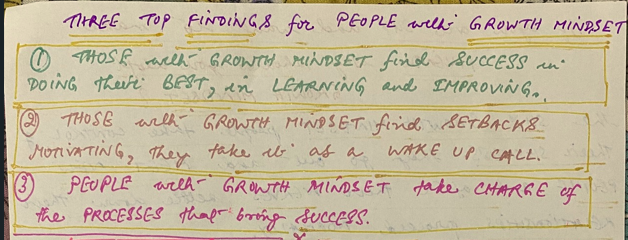 THREE TOP FINDINGS for PEOPLE with GROWTH MINDSET
① THOSE with GROWTH MINDSET find SUCCESS in
DOING their BEST, in LEARNING and IMPROVING.
② THOSE with GROWTH MINDSET find SETBACKS
MOTIVATING, they take it as a WAKE UP CALL.
③ PEOPLE with GROWTH MINDSET take CHARGE of
the PROCESSES that bring SUCCESS.